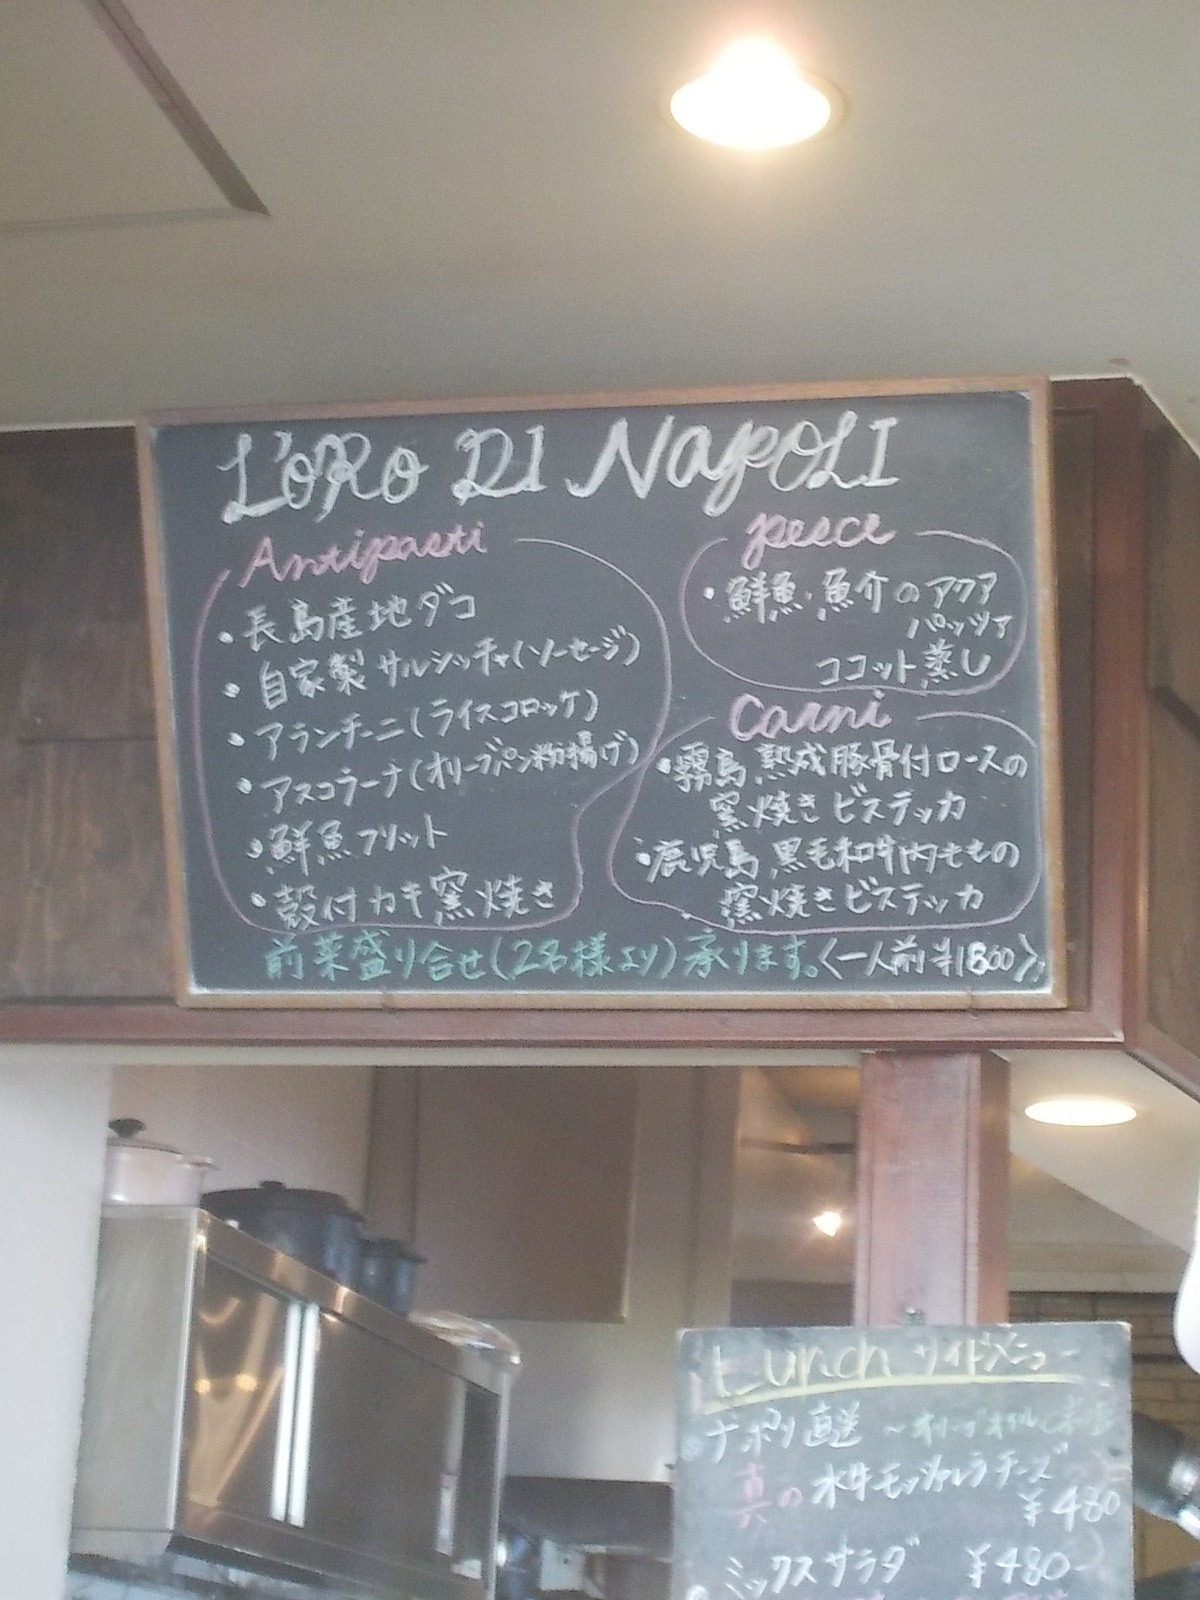 L'ORO DI NAPOLI
Antipasti
・長島産地ダコ
・自家製サルシッチャ(ソーセージ)
・アランチーニ(ライスコロッケ)
・アスコラーナ(オリーブパン粉揚げ)
・鮮魚フリット
・殻付カキ窯焼き
pesce
・鮮魚・魚介のアクア
パッツァ
ココット蒸し
Carni
・霧島熟成豚骨付ロースの
窯焼きビステッカ
・鹿児島黒毛和牛内ももの
窯焼きビステッカ
前菜盛り合せ(2名様より)承ります。〈一人前¥1800〉
Lunch サイドメニュー
ナポリ直送 ~オリーブオイル
真の水牛モッツァレラチーズ
¥480
ミックスサラダ ¥480-